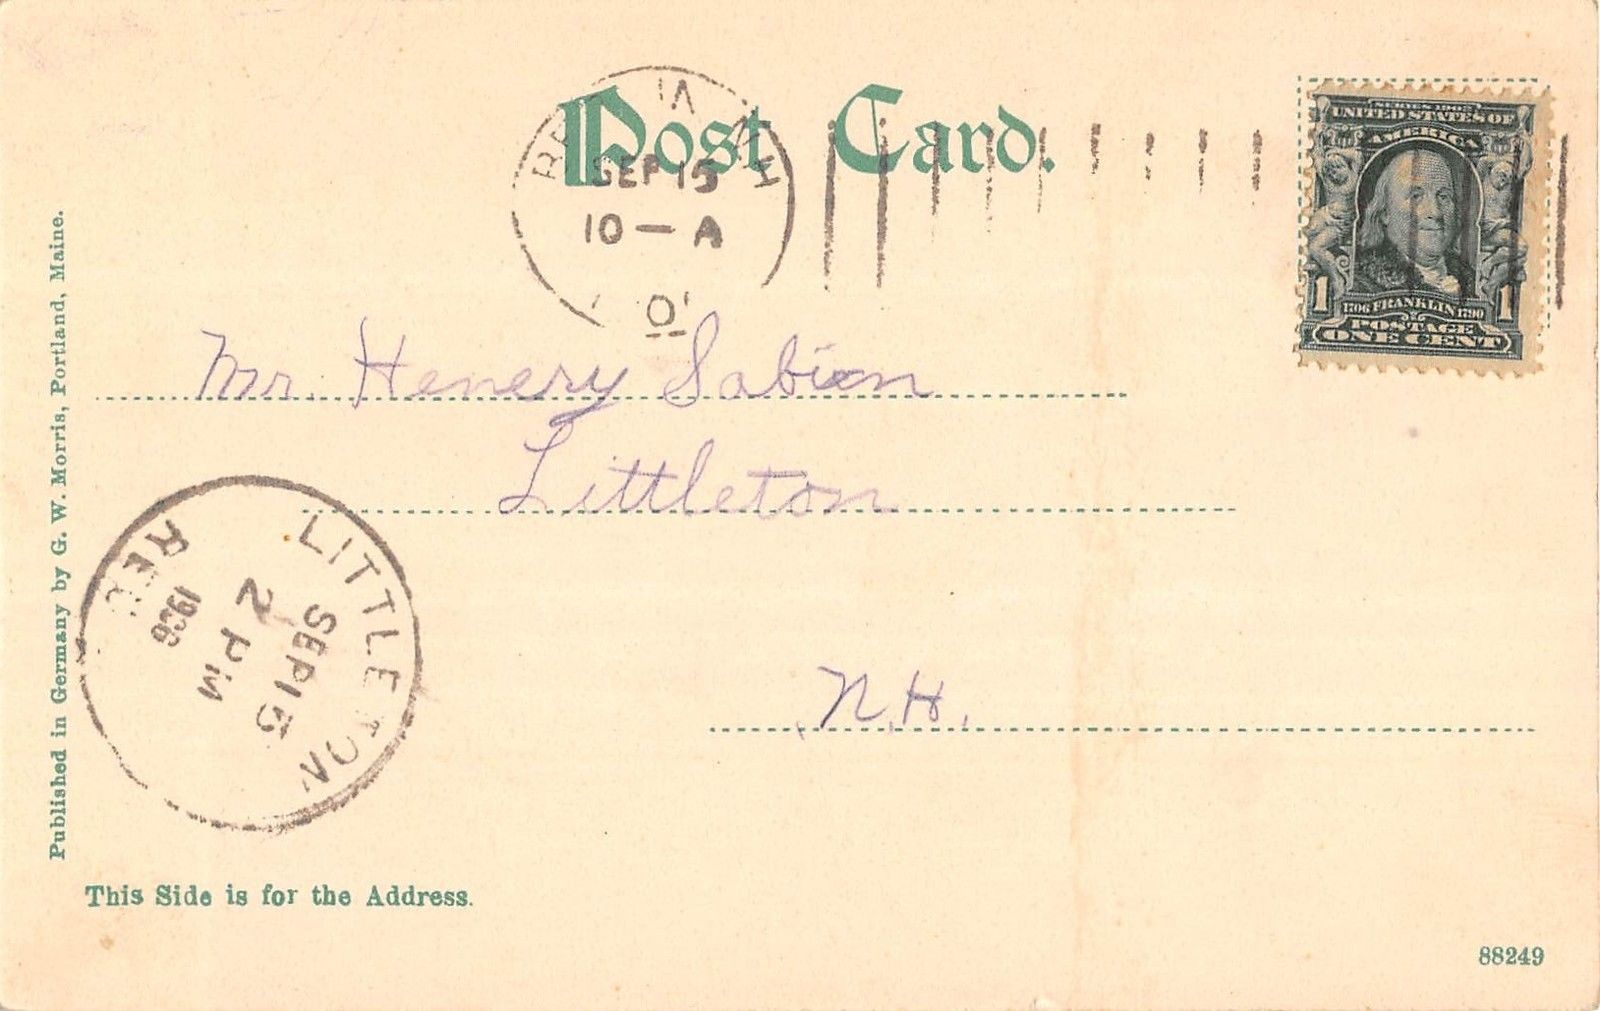 Post Card.
SEP 15
10 — A
SERIES 1902
UNITED STATES OF
AMERICA
1 1
1706 FRANKLIN 1790
POSTAGE
ONE CENT
Mr. Henery Sabien
Littleton
N.H.
LITTLETON
SEP 15
2 PM
1906
REC'D
Published in Germany by G. W. Morris, Portland, Maine.
This Side is for the Address.
88249